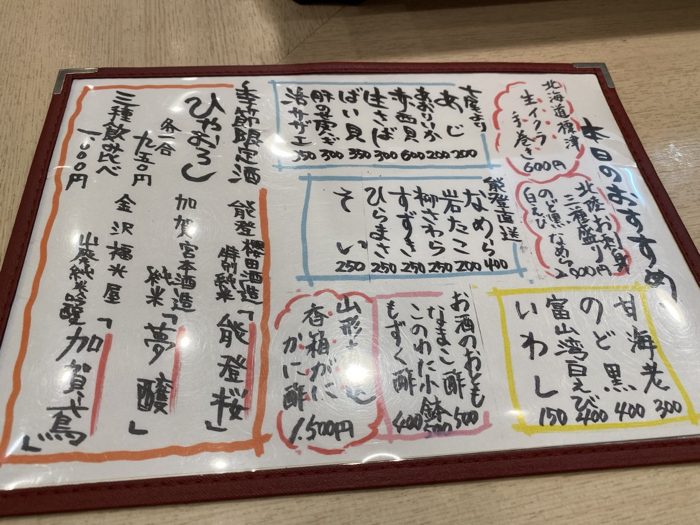 本日のおすすめ
北海道標津
生イクラ
手巻き
600円
北陸お刺身
三種盛り
のど黒なめら
白えび
甘海老 300
のど黒 400
富山湾白えび 400
いわし 150
七尾より
あじ 200
あおりいか 200
赤西貝 600
生さば 300
ばい貝 350
300
活サザエ 350
能登直送
なめら 400
岩たこ 200
柳さわら 250
すずき 250
ひらまさ 250
そい 250
お酒のおとも
なまこ酢 500
このわた小鉢 500
もずく酢 400
山形
香箱がに
かに酢
1.500円
季節限定酒
ひやおろし
各一合
九五〇円
三種飲み比べ
能登 櫻田酒造
特別純米「能登桜」
加賀 宮本酒造
純米「夢醸」
金沢 福光屋
山廃純米吟醸「加賀鳶」